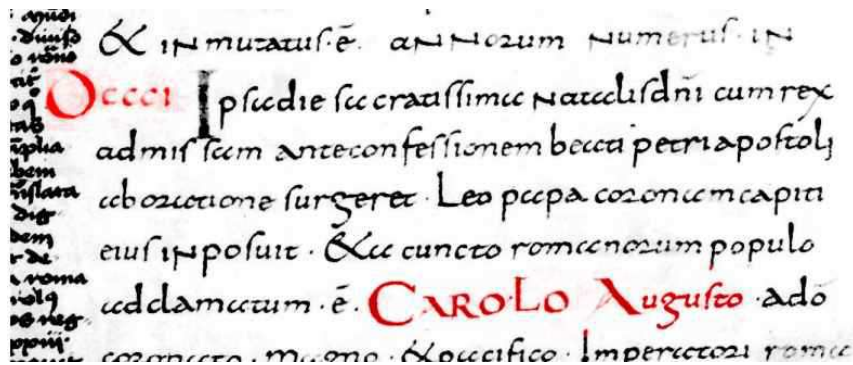 & inmutatus·ē· annorum numerus·in
Dccci Ipsadie sacratissima natalisdñi cumrex
admissam anteconfessionem beati petriapostoli
aboratione surgeret · Leo papa coronamcapiti
eiusinposuit · &a cuncto romanorum populo
adclamatum·ē· CAROLO Augusto · adō
coronato · magno · &pacifico · Imperatori roma